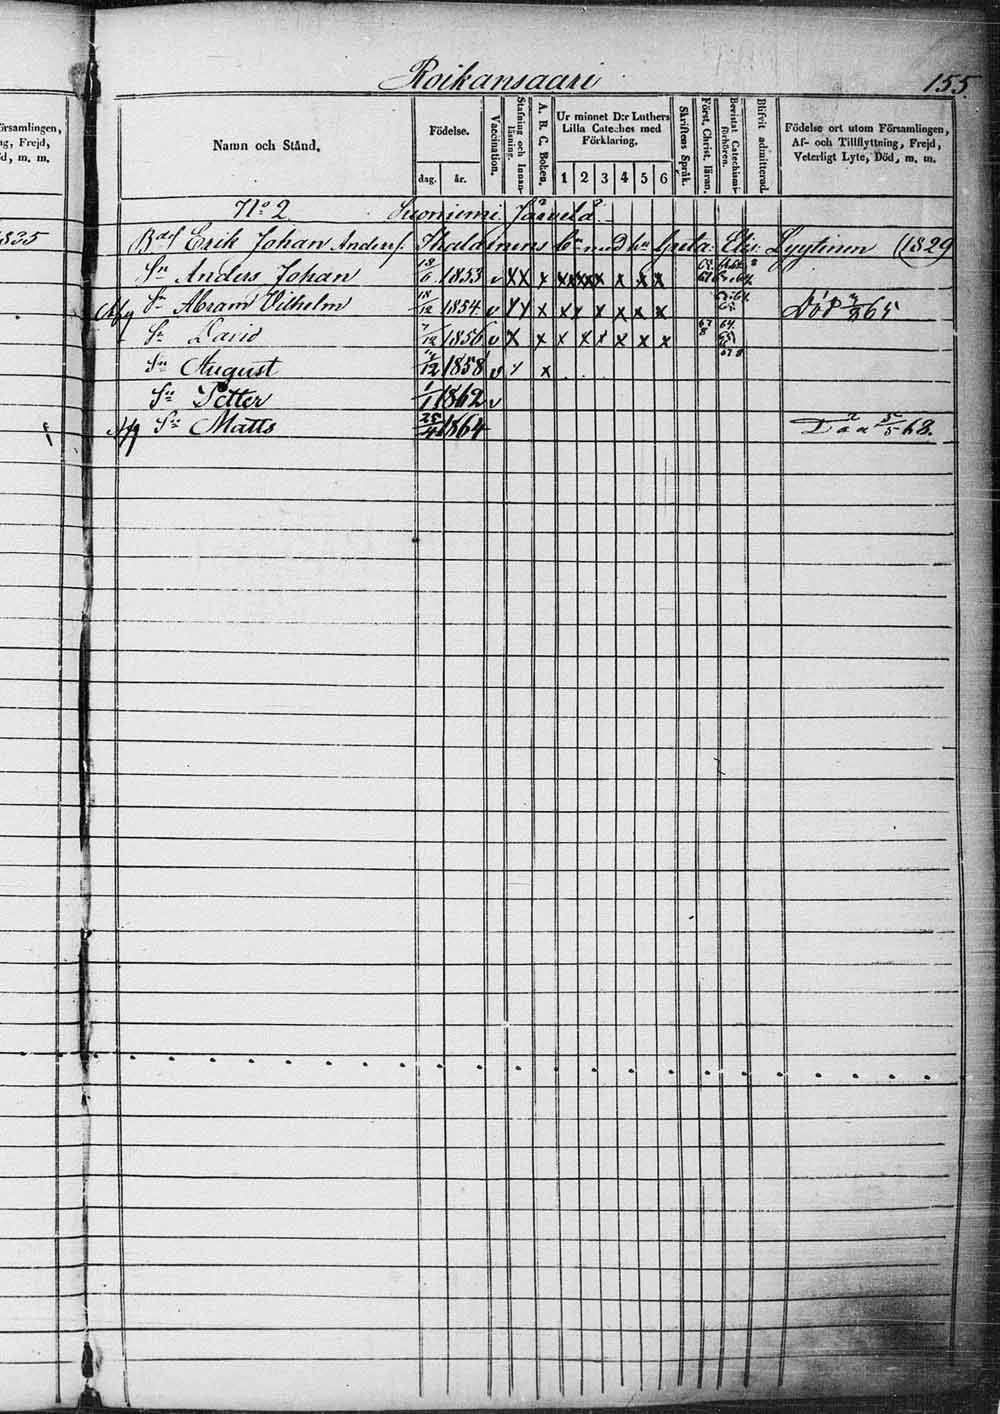 Roikansaari
155.
örsamlingen,
ng, Frejd,
öd, m. m.
Namn och Stånd.
Födelse.
dag. år.
Vaccination.
Stafning och Innanläsning.
A. B. C. Boken.
Ur minnet D:r Luthers
Lilla Cateches med
Förklaring.
1 2 3 4 5 6
Skriftens Språk.
Först. Christ. läran.
Bevistat Catechismi-förhören.
Blifvit admitterad.
Födelse ort utom Församlingen,
Af- och Tillflyttning, Frejd,
Veterligt Lyte, Död, m. m.
No 2 Suoniemi Järvelä
1835
Erik Johan Andersf. Ihalainens med Greta Elis: Lyytinen (1829
Sn Anders Johan 1853 v x x x x x x x x x x
Afg Sn Abram Wilhelm 18/12 1854 v x x x x x x x x x Död 65
Sn David 7/12 1856 v x x x x x x x x
Sn August 1858 v x
Sn Petter 1/1 1862 v
Afg Sn Matts 25/4 1864 5/5 68.